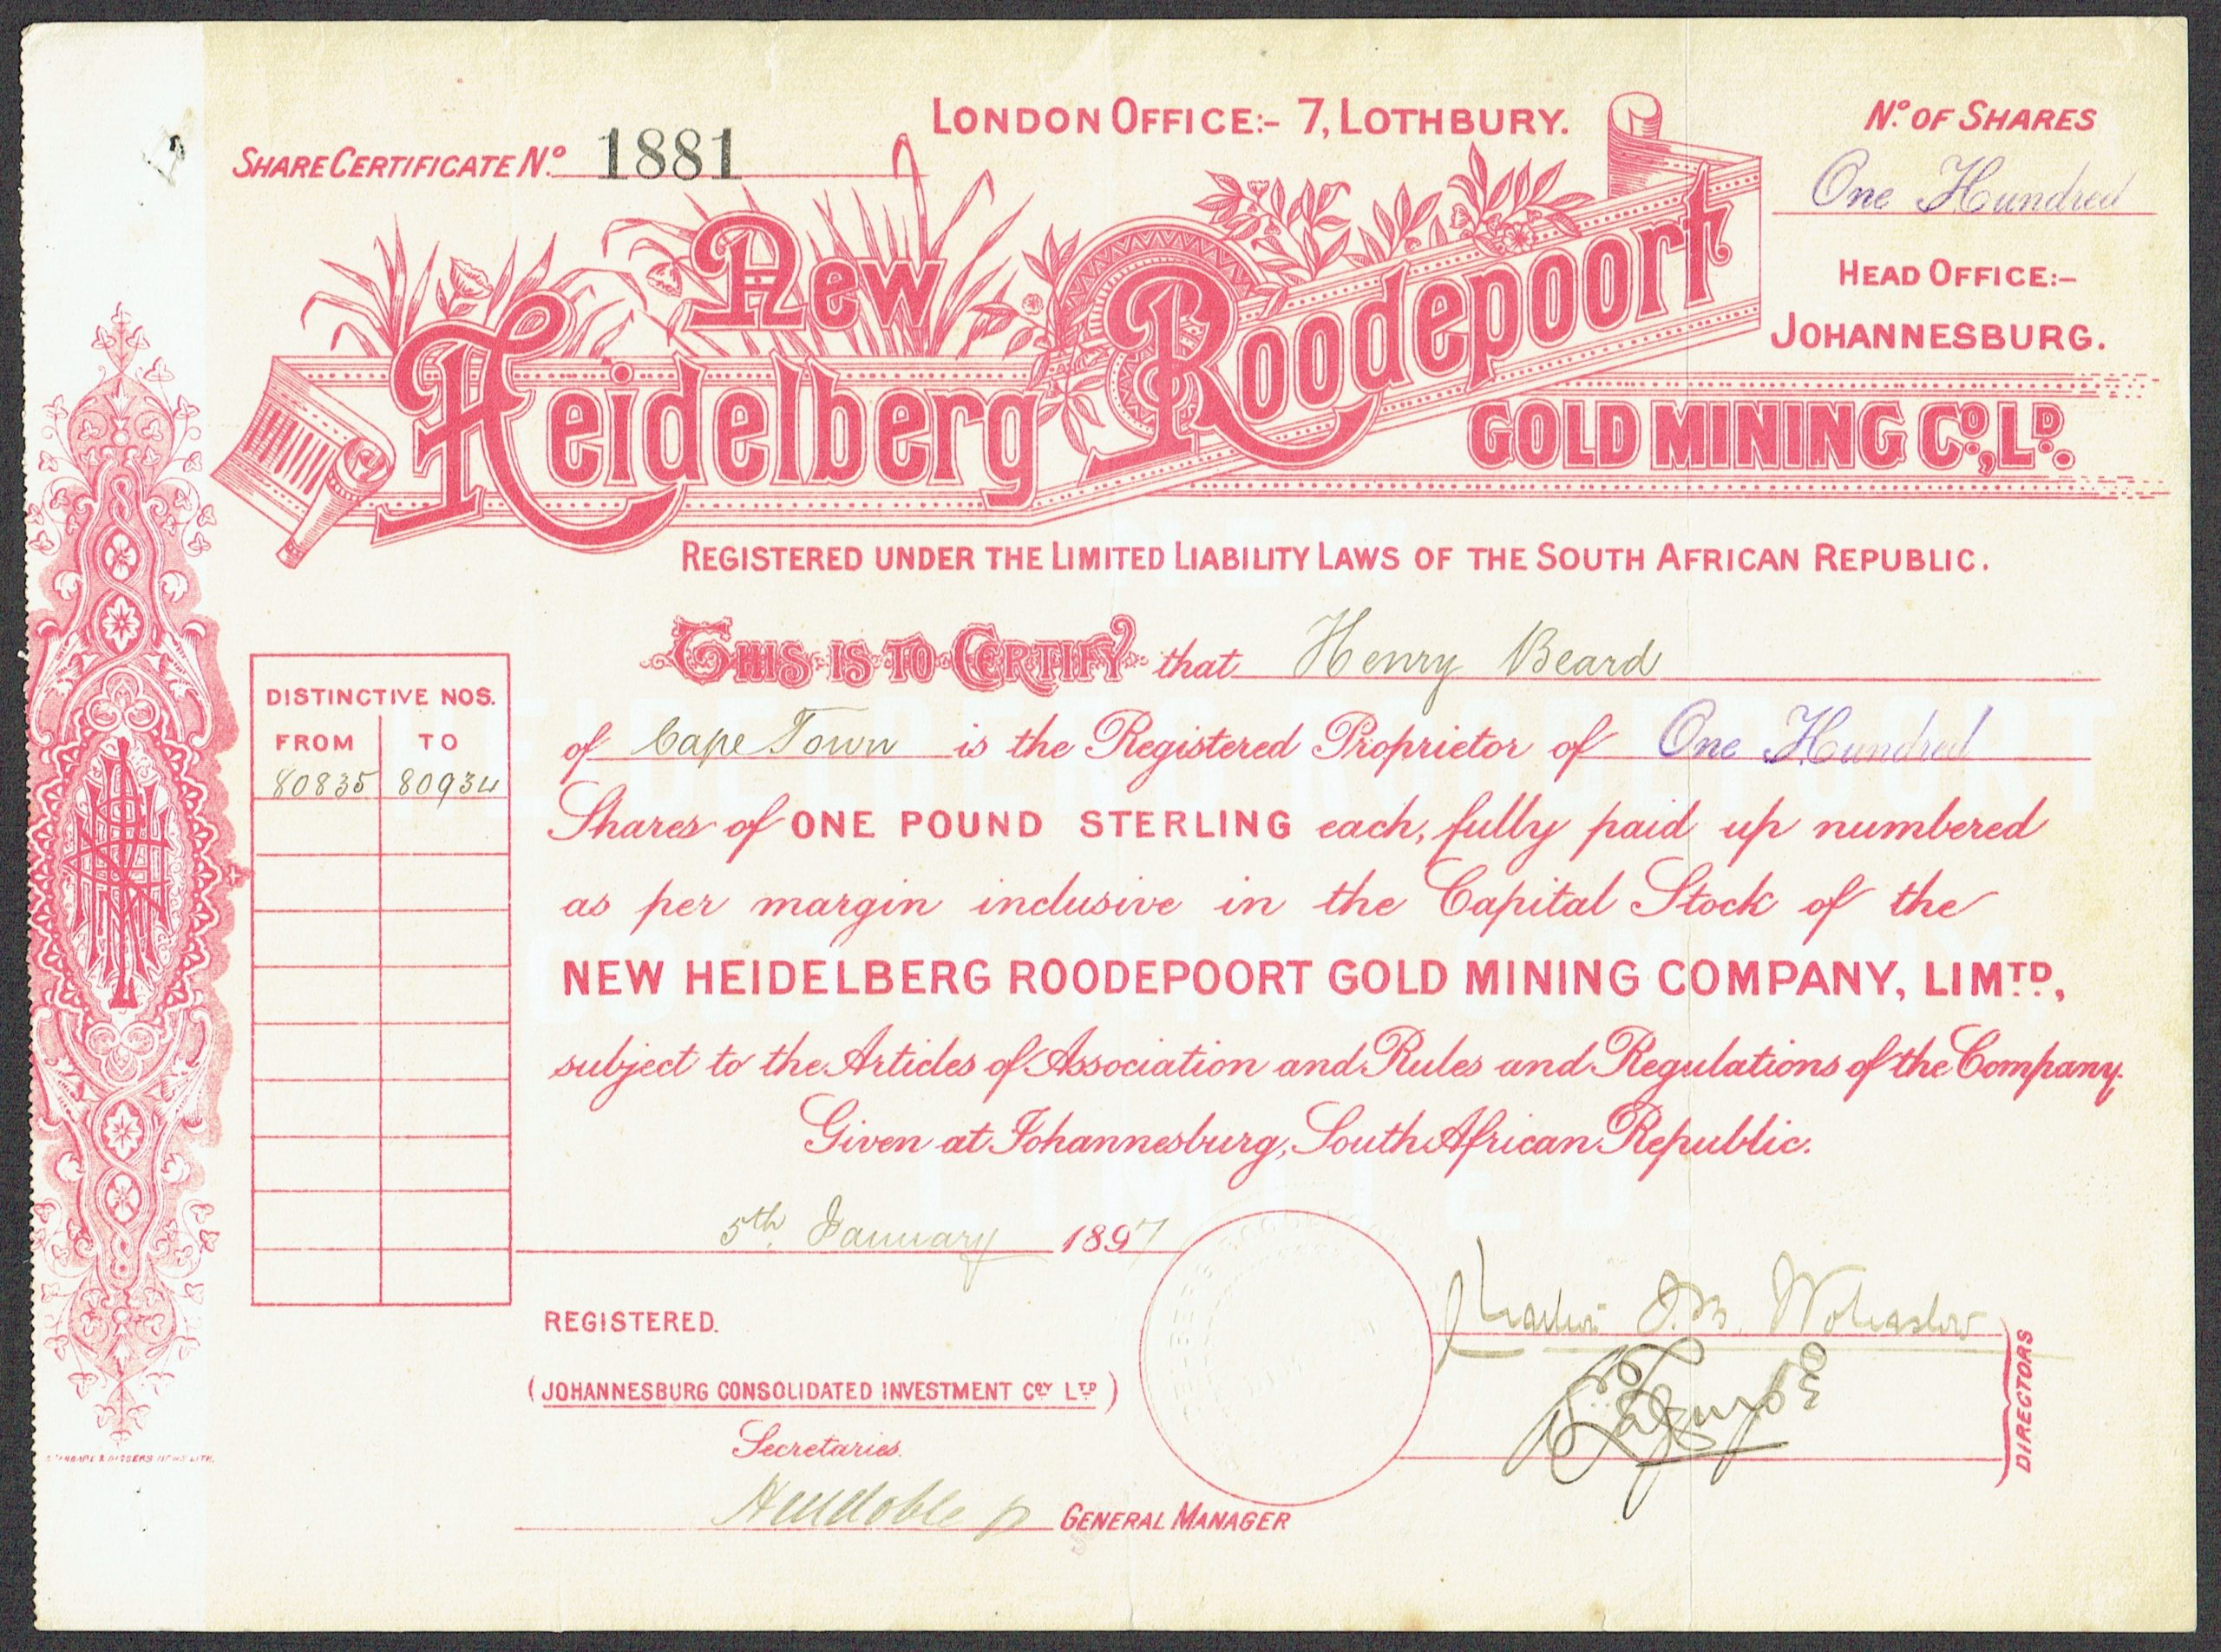 LONDON OFFICE:- 7, LOTHBURY.
SHARE CERTIFICATE No. 1881
No. OF SHARES
One Hundred
HEAD OFFICE:-
JOHANNESBURG.
New
Heidelberg Roodepoort
GOLD MINING Co., LD.
REGISTERED UNDER THE LIMITED LIABILITY LAWS OF THE SOUTH AFRICAN REPUBLIC.
THIS IS TO CERTIFY that Henry Beard
of Cape Town is the Registered Proprietor of One Hundred
Shares of ONE POUND STERLING each, fully paid up numbered
as per margin inclusive in the Capital Stock of the
NEW HEIDELBERG ROODEPOORT GOLD MINING COMPANY, LIMTD,
subject to the Articles of Association and Rules and Regulations of the Company.
Given at Johannesburg, South African Republic.
DISTINCTIVE NOS.
FROM TO
80835 80934
5th January 1897
REGISTERED.
(JOHANNESBURG CONSOLIDATED INVESTMENT COY LTD)
Secretaries.
GENERAL MANAGER
DIRECTORS
NEW
HEIDELBERG ROODEPOORT
GOLD MINING COMPANY
LIMITED.